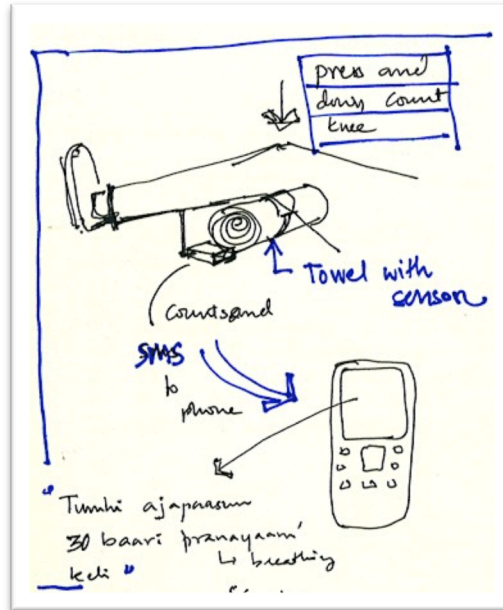 press and
down count
knee
Towel with
sensor
counts and
SMS
to
phone
"Tumhi ajapaasun
30 baari pranayaam
↳ breathing
keli"